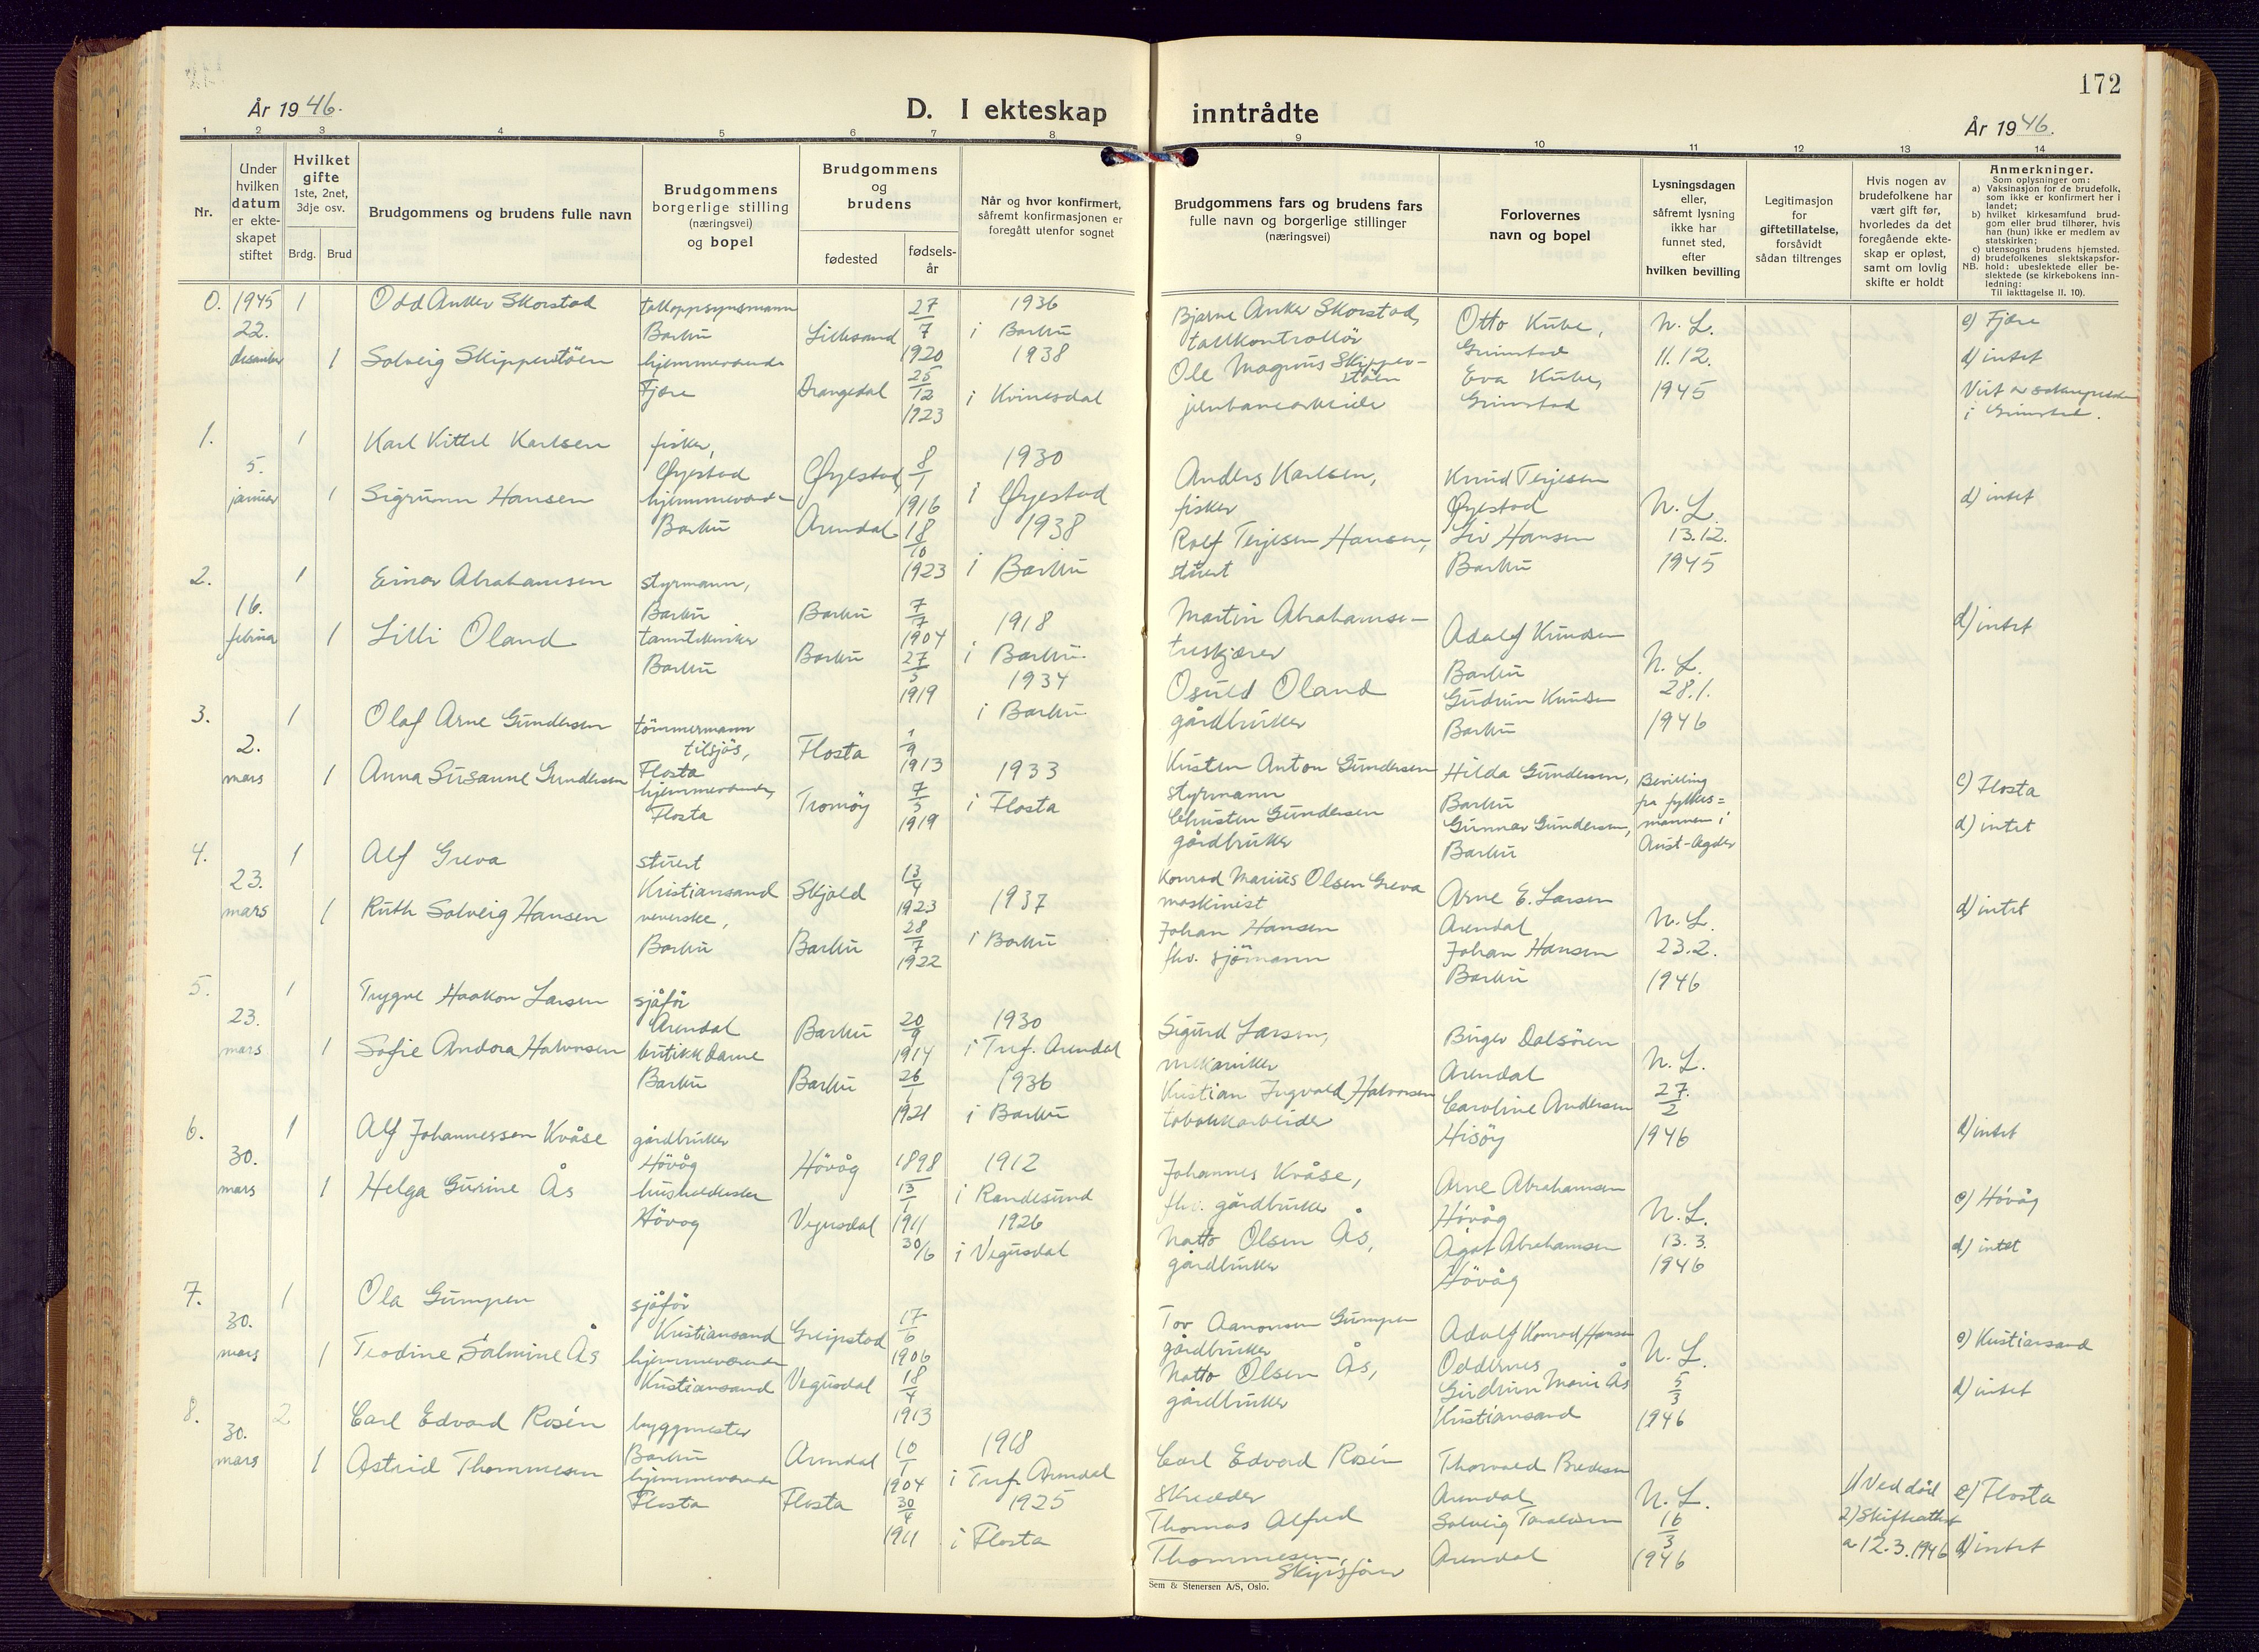 172
År 1946.
D. I ekteskap inntrådte
År 1946.
1 2 3 4 5 6 7 8 9 10 11 12 13 14
Nr.
Under hvilken datum er ekteskapet stiftet
Hvilket gifte
1ste, 2net, 3dje osv.
Brdg. Brud
Brudgommens og brudens fulle navn
Brudgommens borgerlige stilling (næringsvei) og bopel
Brudgommens og brudens
fødested
fødsels-år
Når og hvor konfirmert, såfremt konfirmasjonen er foregått utenfor sognet
Brudgommens fars og brudens fars fulle navn og borgerlige stillinger (næringsvei)
Forlovernes navn og bopel
Lysningsdagen eller, såfremt lysning ikke har funnet sted, efter hvilken bevilling
Legitimasjon for giftetillatelse, forsåvidt sådan tiltrenges
Hvis nogen av brudefolkene har vært gift før, hvorledes da det foregående ekteskap er opløst, samt om lovlig skifte er holdt
Anmerkninger.
Som oplysninger om:
a) Vaksinasjon for de brudefolk, som ikke er konfirmert her i landet;
b) hvilket kirkesamfund brudgom eller brud tilhører, hvis han (hun) ikke er medlem av statskirken;
c) utensogns brudens hjemsted.
d) brudefolkenes slektskapsforhold: ubeslektede eller beslektede (se kirkebokens innledning:
NB.
Til iakttagelse II. 10).
0. 1945 22. desember
1 Odd Anker Skorstad
tolloppsynsmann Barbu
Lillesand
27/7 1920
1936 i Barbu
1 Solveig Skipperstöen
hjemmeværende Fjære
Drangedal
25/12 1923
1938 i Kvinesdal
Bjarne Anker Skorstad, tollkontrollör
Ole Magnus Skipperstöen jernbanearbeider
Otto Kube, Grimstad
Eva Kube, Grimstad
N. L. 11.12. 1945
c) Fjære
d) intet
i Grimstad.
1. 5. januar
1 Karl Kittel Karlsen
fisker, Öyestad
Öyestad
8/1 1916
1930 i Öyestad
1 Sigrunn Hansen
hjemmeværende Barbu
Arendal
18/10 1923
1938 i Barbu
Anders Karlsen, fisker
Rolf Terjesen Hansen, stuert
Knud Terjesen Öyestad
Liv Hansen Barbu
N. L. 13.12. 1945
d) intet
2. 16. februar
1 Einar Abrahamsen
styrmann, Barbu
Barbu
7/7 1904
1918 i Barbu
1 Lilli Oland
tanntekniker Barbu
Barbu
27/5 1919
1934 i Barbu
Martin Abrahamsen treskjærer
Osuld Oland gårdbruker
Adolf Knudsen Barbu
Gudrun Knudsen Barbu
N. L. 28.1. 1946
d) intet
3. 2. mars
1 Olaf Arne Gundersen
tömmermann tilsjös, Flosta
Flosta
1/9 1913
1933 i Flosta
1 Anna Susanne Gundersen
hjemmeværende, Flosta
Tromöy
7/5 1919
Kristen Anton Gundersen styrmann
Christen Gundersen gårdbruker
Hilda Gundersen, Barbu
Gunnar Gundersen, Barbu
Bevilling fra fylkesmannen i Aust-Agder
c) Flosta
d) intet
4. 23. mars
1 Alf Greva
stuert Kristiansand
Skjold
13/4 1923
1937 i Barbu
1 Ruth Solveig Hansen
veverske, Barbu
Barbu
28/7 1922
Konrad Marius Olsen Greva maskinist
Johan Hansen fhv. sjömann
Arne E. Larsen Arendal
Johan Hansen Barbu
N. L. 23.2. 1946
d) intet
5. 23. mars
1 Trygve Haakon Larsen
sjåför Arendal
Barbu
20/9 1914
1930 i Tref. Arendal
1 Sofie Andora Halvorsen
butikkdame Barbu
Barbu
26/1 1921
1936 i Barbu
Sigurd Larsen, mekaniker
Kristian Ingvald Halvorsen tobakkarbeider
Birger Dalsören Arendal
Caroline Andersen Hisöy
N. L. 27/2 1946
d) intet
6. 30. mars
1 Alf Johannessen Kvåse
gårdbruker Hövåg
Hövåg
1898 13/1
1912 i Randesund
1 Helga Gurine Ås
husholderske Hövåg
Vegusdal
1911 30/6
1926 i Vegusdal
Johannes Kvåse, fhv. gårdbruker
Natto Olsen Ås, gårdbruker
Arne Abrahamsen Hövåg
Ågot Abrahamsen Hövåg
N. L. 13.3. 1946
c) Hövåg
d) intet
7. 30. mars
1 Ola Gumpen
sjåför Kristiansand
Greipstad
17/6 1906
1 Teodine Salmine Ås
hjemmeværende Kristiansand
Vegusdal
18/4 1913
Tov Aanonsen Gumpen gårdbruker
Natto Olsen Ås, gårdbruker
Adolf Konrad Hansen Oddernes
Gudrun Marie Ås Kristiansand
N. L. 5/3 1946
c) Kristiansand
d) intet
8. 30. mars
2 Carl Edvard Rosén
byggmester Barbu
Arendal
10/1 1904
1918 i Tref. Arendal
1 Astrid Thommesen
hjemmeværende Flosta
Flosta
30/4 1911
1925 i Flosta
Carl Edvard Rosén skredder
Thomas Alfred Thommesen, Skipsförer
Thorvald Bredesen Arendal
Solveig Taraldsen Arendal
N. L. 16/3 1946
1) Ved död
2) Skifteattest a 12.3.1946
c) Flosta
d) intet
Sem & Stenersen A/S, Oslo.